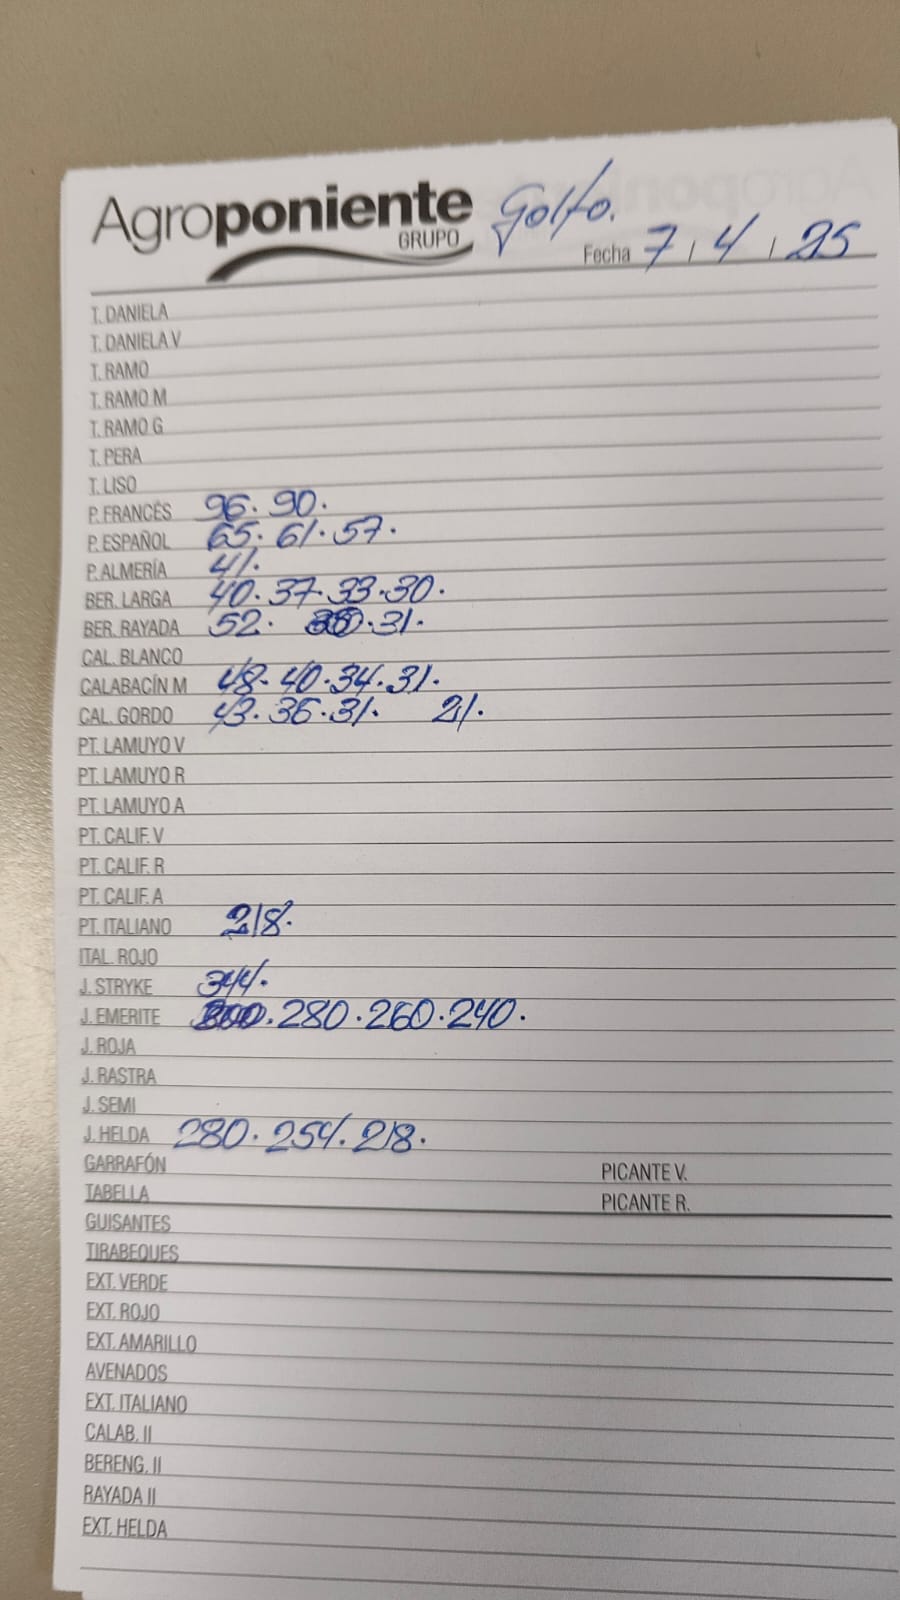 Agroponiente
GRUPO
Golfo.
Fecha 7 / 4 / 25
T. DANIELA
T. DANIELA V
T. RAMO
T. RAMO M
T. RAMO G
T. PERA
T. LISO
P. FRANCÉS 96. 90.
P. ESPAÑOL 65. 61. 57.
P. ALMERÍA 41.
BER. LARGA 40. 37. 33. 30.
BER. RAYADA 52. 31.
CAL. BLANCO
CALABACÍN M 48. 40. 34. 31.
CAL. GORDO 43. 36. 31. 21.
PT. LAMUYO V
PT. LAMUYO R
PT. LAMUYO A
PT. CALIF. V
PT. CALIF. R
PT. CALIF. A
PT. ITALIANO 218.
ITAL. ROJO
J. STRYKE 344.
J. EMERITE 300. 280. 260. 240.
J. ROJA
J. RASTRA
J. SEMI
J. HELDA 280. 254. 218.
GARRAFÓN PICANTE V.
TABELLA PICANTE R.
GUISANTES
TIRABEQUES
EXT. VERDE
EXT. ROJO
EXT. AMARILLO
AVENADOS
EXT. ITALIANO
CALAB. II
BERENG. II
RAYADA II
EXT. HELDA